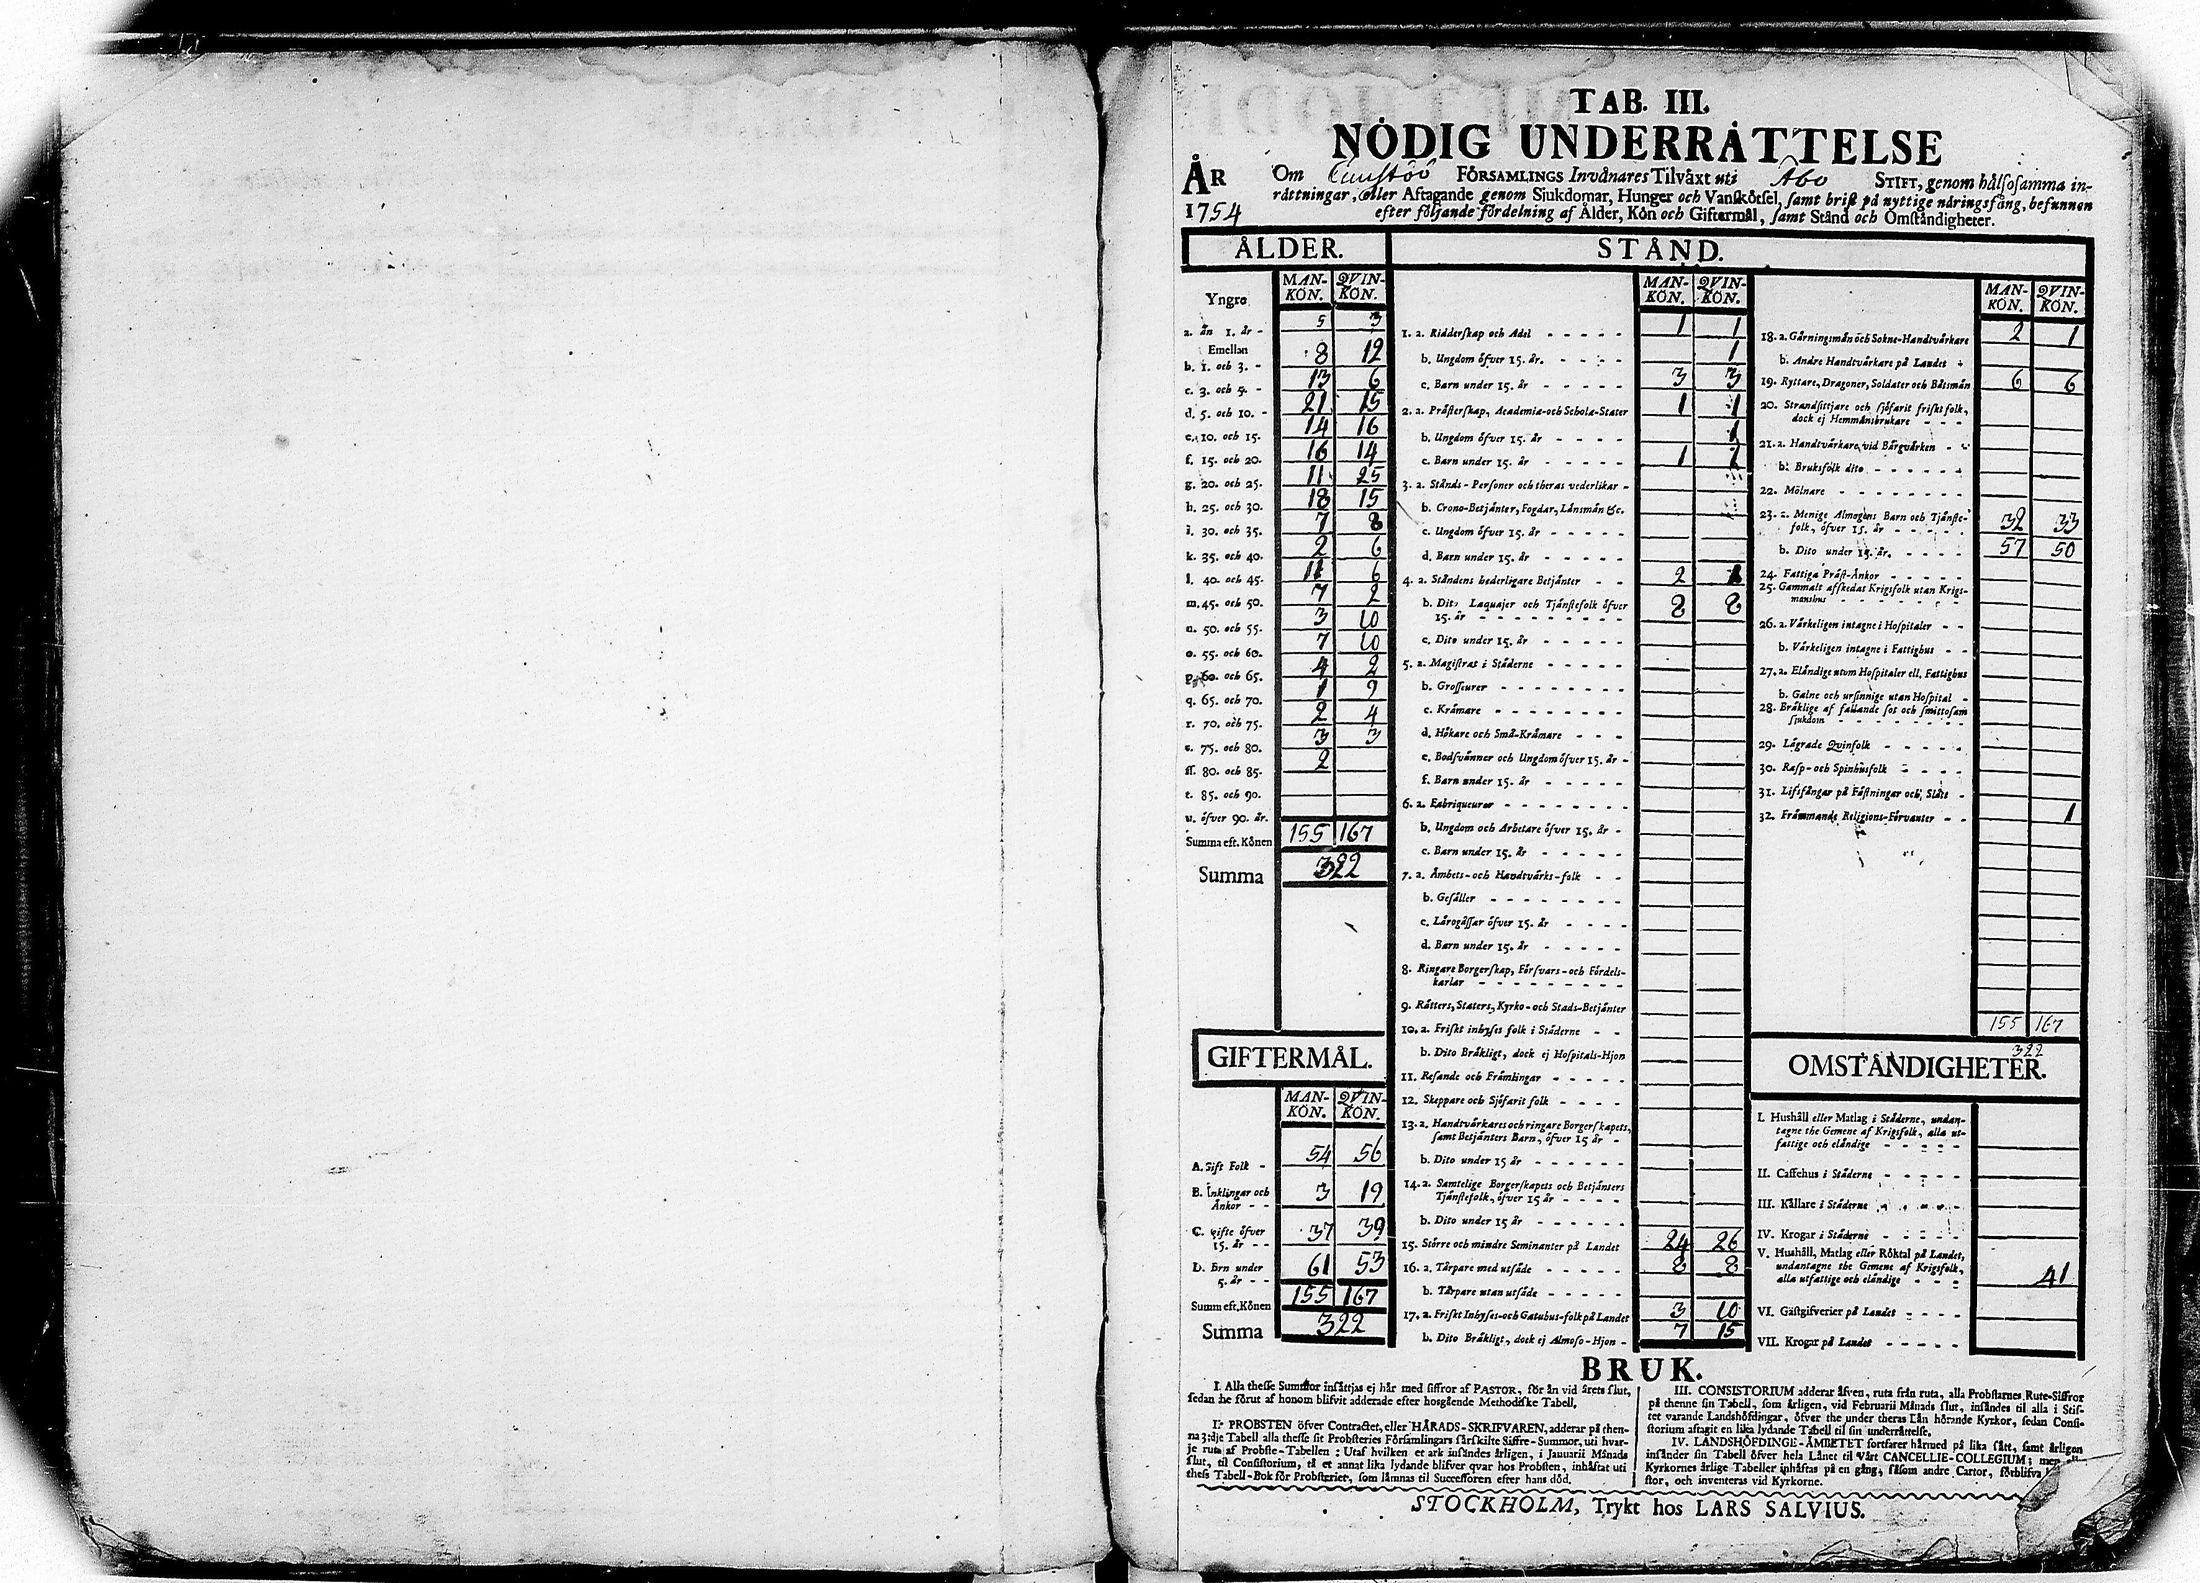 TAB. III.
NÖDIG UNDERRÄTTELSE
ÅR 1754
Om Kimito FÖRSAMLINGS Invånares Tilväxt uti Åbo STIFT, genom hälsosamma in-
rättningar, eller Aftagande genom Sjukdomar, Hunger och Vanskötsel, samt brist på nyttige näringsfång, befunnen
efter följande fördelning af Ålder, Kön och Giftermål, samt Stånd och Omständigheter.
ÅLDER.
MAN-KÖN. QVIN-KÖN.
Yngre
a. än 1. år - 5 3
Emellan
b. 1. och 3. - 8 12
c. 3. och 5. - 13 6
d. 5. och 10. - 21 15
e. 10. och 15. 14 16
f. 15. och 20. 16 14
g. 20. och 25. 11 25
h. 25. och 30. 18 15
i. 30. och 35. 7 8
k. 35. och 40. 2 6
l. 40. och 45. 11 6
m. 45. och 50. 7 2
n. 50. och 55. 3 10
o. 55. och 60. 7 10
p. 60. och 65. 4 2
q. 65. och 70. 1 9
r. 70. och 75. 2 4
s. 75. och 80. 3 3
ss. 80. och 85. 2
t. 85. och 90.
u. öfver 90. år.
Summa eft. Könen 155 167
Summa 322
GIFTERMÅL.
MAN-KÖN. QVIN-KÖN.
A. Gift Folk - 54 56
B. Enklingar och
Änkor - - 3 19
C. gifte öfver
15. år - - 37 39
D. Brn under
5. år - - 61 53
Summ eft. Könen 155 167
Summa 322
STÅND.
MAN-KÖN. QVIN-KÖN.
1. a. Ridderskap och Adel 1 1
b. Ungdom öfver 15. år. 1
c. Barn under 15. år 3 3
2. a. Prästerskap, Academiæ-och Scholæ-Stater 1 1
b. Ungdom öfver 15. år 1
c. Barn under 15. år 1 1
3. a. Stånds-Personer och theras vederlikar
b. Crono-Betjänter, Fogdar, Länsmän &c.
c. Ungdom öfver 15. år
d. Barn under 15. år
4. a. Ståndens hederligare Betjänter 2 1
b. Dito Laquajer och Tjänstefolk öfver
15. år 8 8
c. Dito under 15. år
5. a. Magistrat i Städerne
b. Grosseurer
c. Krämare
d. Hökare och Små-Krämare
e. Bodsvänner och Ungdom öfver 15. år
f. Barn under 15. år
6. a. Fabriqueurer
b. Ungdom och Arbetare öfver 15. år
c. Barn under 15. år
7. a. Ämbets-och Handtvärks-folk
b. Gesäller
c. Lärogässar öfver 15. år
d. Barn under 15. år
8. Ringare Borgerskap, Försvars-och Fördels-
karlar
9. Rätters, Staters, Kyrko-och Stads-Betjänter
10. a. Friskt inhyses folk i Städerne
b. Dito Bräkligt, dock ej Hospitals-Hjon
11. Resande och Främlingar
12. Skeppare och Sjöfarit folk
13. a. Handtvärkares och ringare Borgerskapets,
samt Betjänters Barn, öfver 15 år
b. Dito under 15 år
14. a. Samtelige Borgerskapets och Betjänters
Tjänstefolk, öfver 15 år
b. Dito under 15 år
15. Större och mindre Heminanter på Landet 24 26
16. a. Torpare med utsäde 8 8
b. Torpare utan utsäde
17. a. Friskt Inhyses-och Gatuhus-folk på Landet 3 10
b. Dito Bräkligt, dock ej Almoso-Hjon 7 15
MAN-KÖN. QVIN-KÖN.
18. a. Gärningsmän och Sokne-Handtvärkare 2 1
b. Andre Handtvärkare på Landet
19. Ryttare, Dragoner, Soldater och Båtsmän 6 6
20. Strandsittjare och sjöfarit friskt folk,
dock ej Hemmansbrukare
21. a. Handtvärkare vid Bärgvärken
b. Bruksfolk dito
22. Mölnare
23. a. Menige Almogens Barn och Tjänste-
folk, öfver 15. år 32 33
b. Dito under 15. år. 57 50
24. Fattiga Präst-Änkor
25. Gammalt affkedat Krigsfolk utan Krigs-
manshus
26. a. Värkeligen intagne i Hospitaler
b. Värkeligen intagne i Fattighus
27. a. Eländige utom Hospitaler ell. Fattighus
b. Galne och ursinnige utan Hospital
28. Bräklige af fallande sot och smittosam
sjukdom
29. Lägrade Qvinfolk
30. Rasp-och Spinhusfolk
31. Lifsfångar på Fästningar och Slått
32. Främmande Religions-Förvanter 1
155 167
322
OMSTÄNDIGHETER.
I. Hushåll eller Matlag i Städerne, undan-
tagne the Gemene af Krigsfolk, alla ut-
fattige och eländige
II. Caffehus i Städerne
III. Källare i Städerne
IV. Krogar i Städerne
V. Hushåll, Matlag eller Röktal på Landet,
undantagne the Gemene af Krigsfolk,
alla utfattige och eländige 41
VI. Gästgifverier på Landet
VII. Krogar på Landet
BRUK.
I. Alla thesse Summor insättjas ej här med siffror af PASTOR, för än vid årets slut,
sedan he förut af honom blifvit adderade efter hosgående Methodiske Tabell.
I. PROBSTEN öfver Contractet, eller HÄRADS-SKRIFVAREN, adderar på then-
na 3:dje Tabell alla thesse sit Probsteries Församlingars särskilte Siffre-Summor, uti hvar-
je ruta af Probste-Tabellen; Utaf hvilken et ark insändes årligen, i Januarii Månads
slut, til Consistorium, tå et annat lika lydande blifver qvar hos Probsten, inhäftat uti
thess Tabell-Bok för Probsteriet, som lämnas til Successoren efter hans död.
III. CONSISTORIUM adderar äfven, ruta från ruta, alla Probstarnes Rute-Siffror
på thenne sin Tabell, som årligen, vid Februarii Månads slut, insändes til alla i Stif-
tet varande Landshöfdingar, öfver the under theras Län hörande Kyrkor, sedan Consi-
storium aftagit en lika lydande Tabell til sin underrättelse.
IV. LANDSHÖFDINGE-ÄMBETET fortfarer härmed på lika sätt, samt årligen
insänder sin Tabell öfver hela Länet til Vårt CANCELLIE-COLLEGIUM; men
Kyrkornes årlige Tabeller inhäftas på en gång, såsom andre Cartor, förblifva
stor, och inventeras vid Kyrkorne.
STOCKHOLM, Trykt hos LARS SALVIUS.